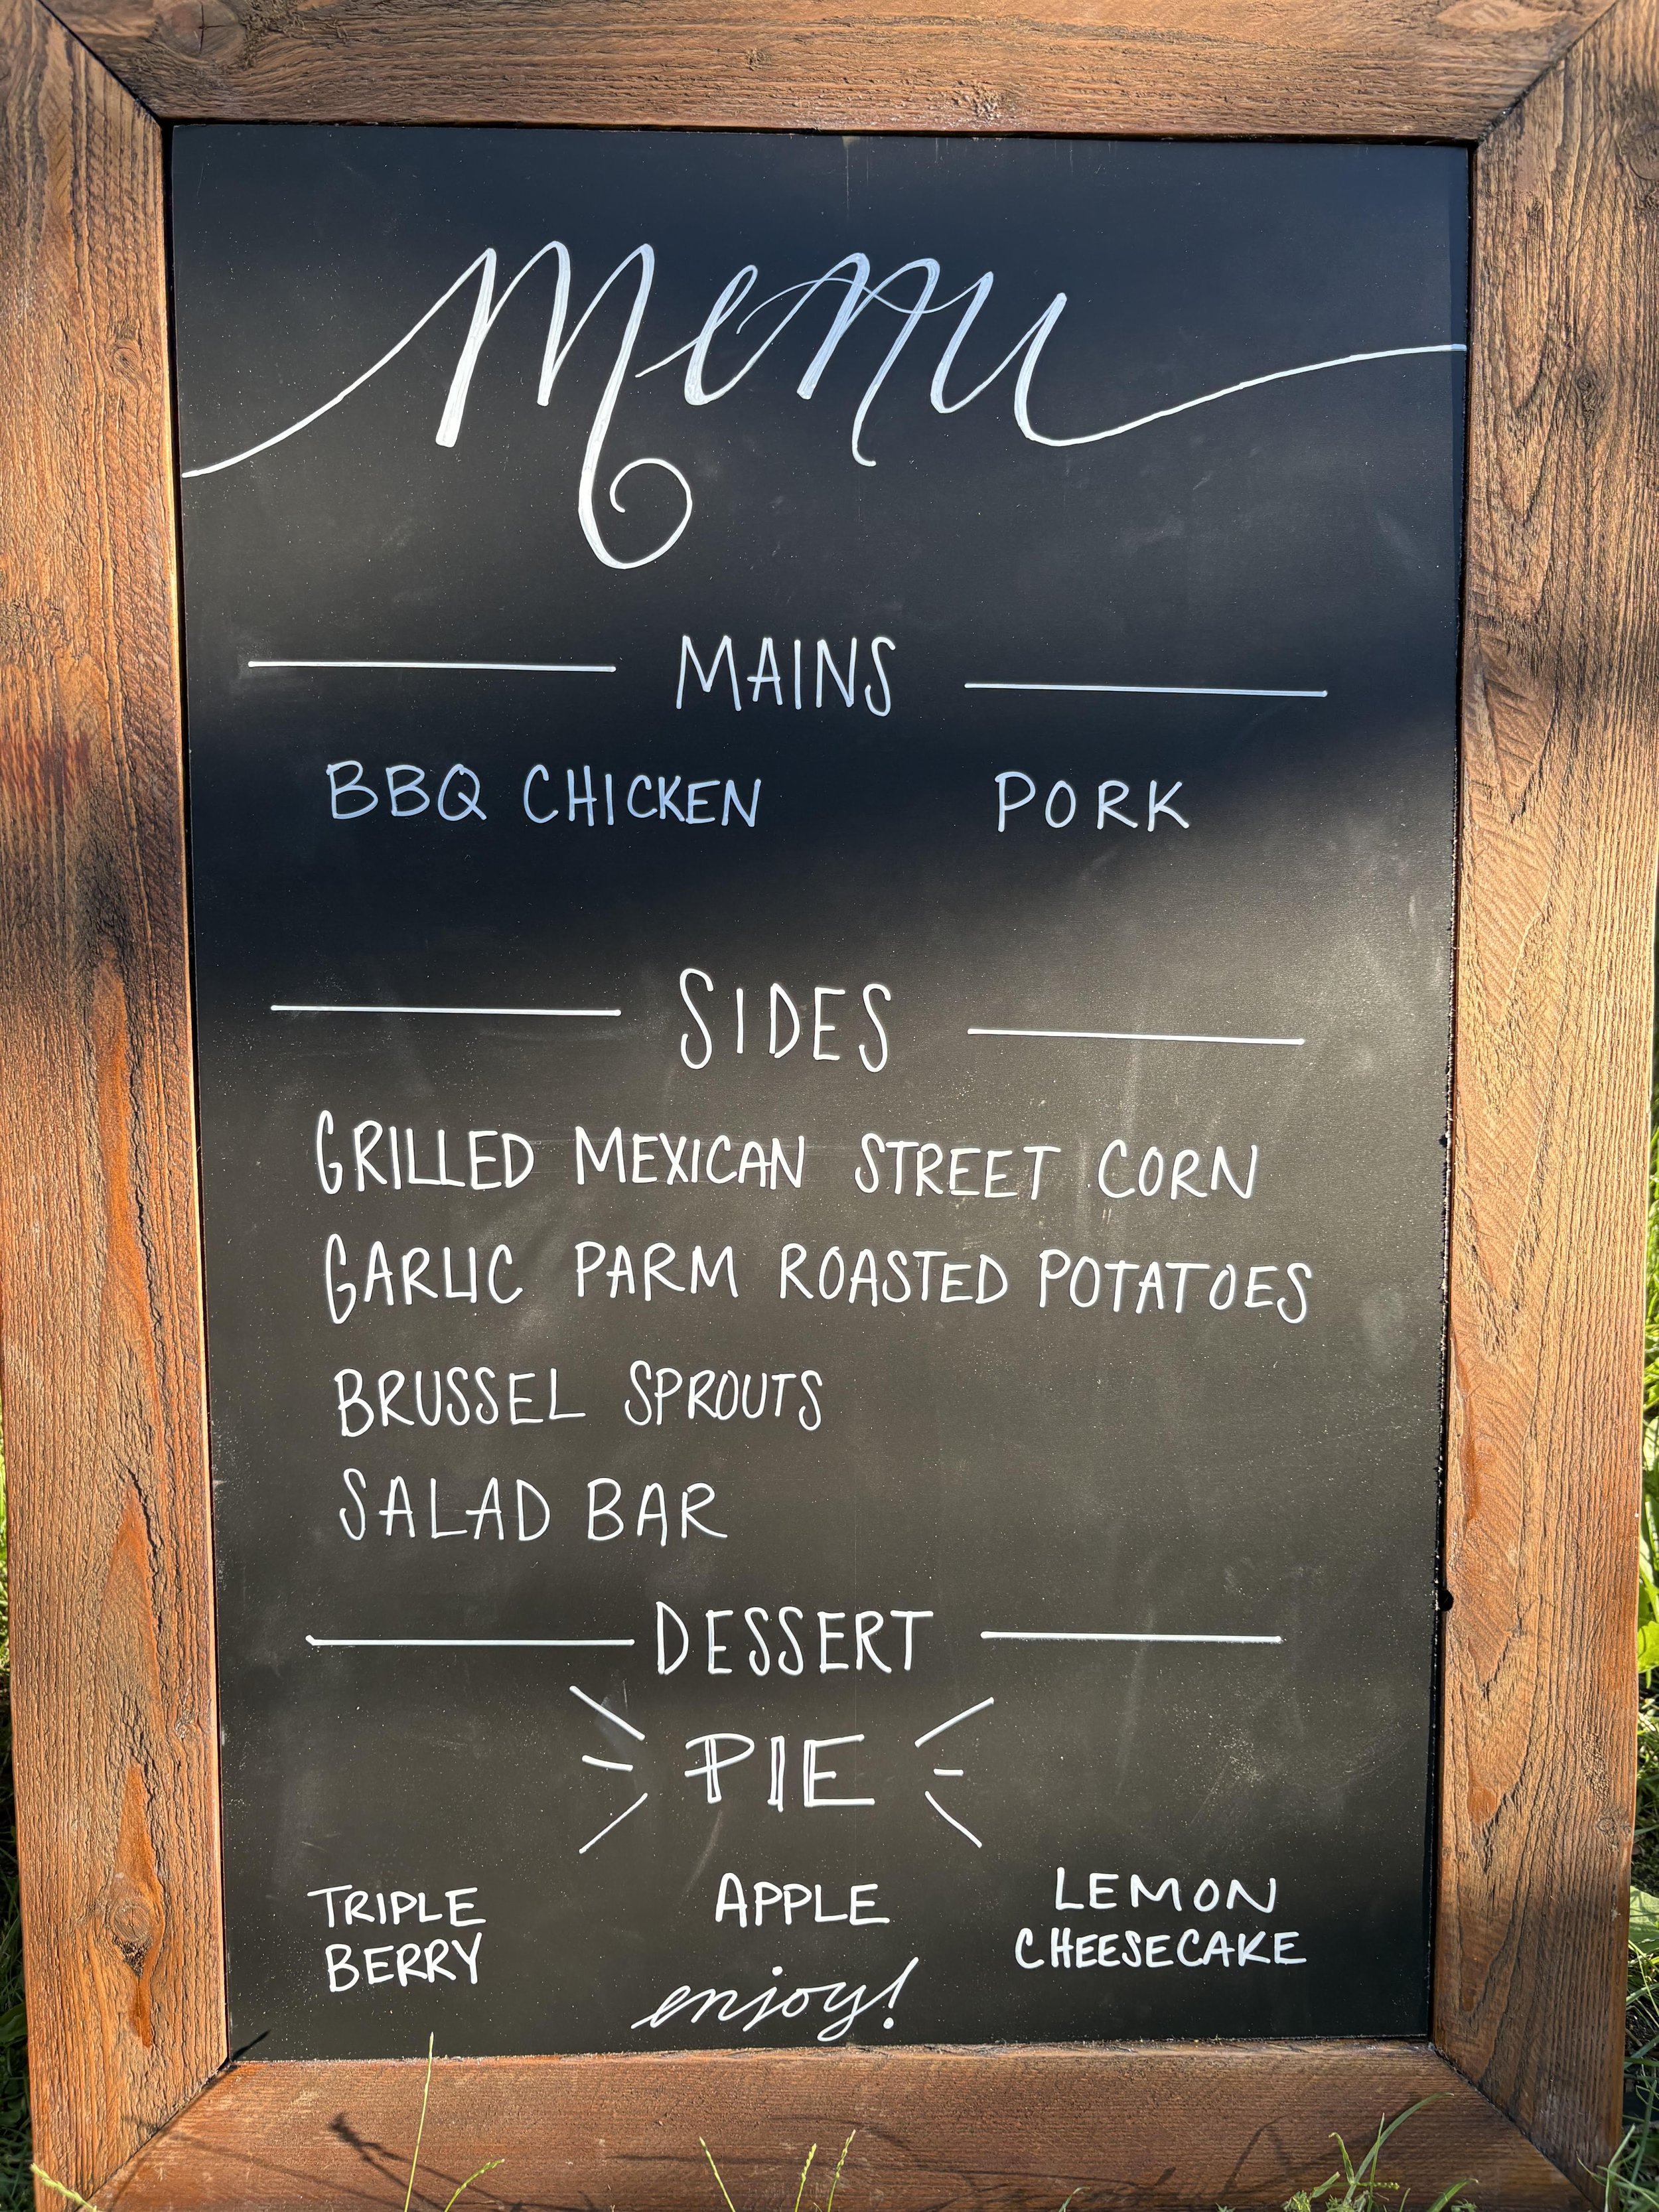 menu
MAINS
BBQ CHICKEN PORK
SIDES
GRILLED MEXICAN STREET CORN
GARLIC PARM ROASTED POTATOES
BRUSSEL SPROUTS
SALAD BAR
DESSERT
PIE
TRIPLE BERRY
APPLE
LEMON CHEESECAKE
enjoy!